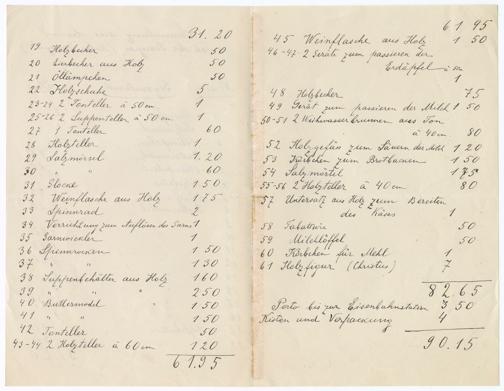 31. 20
19 Holzbecher 50
20 Eierbecher aus Holz 50
21 Öllämpchen 50
22 Holzschuhe 5
23-24 2 Tonteller à 50 cm 1
25-26 2 Suppenteller à 50 cm 1
27 1 Tonteller 60
28 Holzteller 1
29 Salzmörsel 1. 20
30 " " 60
31 Glocke 1 50
32 Weinflasche aus Holz 1 75
33 Spinnrad 2
34 Vorrichtung zum Auflösen des Garns 1
35 Garnwickler 1
36 Spinnrocken 1 50
37 " " 1 30
38 Suppenbehälter aus Holz 1 60
39 " " " 2 50
40 Buttermodel 1 50
41 " 1 50
42 Tonteller 50
43-44 2 Holzteller à 60 cm 1 20
61.95
61 95
45 Weinflasche aus Holz 1 50
46-47 2 Geräte zum passieren der
Erdäpfel
1
48 Holzbecher 75
49 Gerät zum passieren der Milch 1 50
50-51 2 Weihwasserbrunnen aus Ton
à 40cm 80
52 Holzgefäss zum Säuern der 1 20
53 Körbchen zum Brotbacken 1 50
54 Salzmörtel 1 75
55-56 2 Holzteller à 40 cm 80
57 Untersatz aus Holz zum Bereiten
des Käses 1
58 50
59 Milchlöffel 50
60 Körbchen für Mehl 1
61 Holzfigur (Christus) 7
82.65
Porto bis zur Eisenbahnstation 3 50
Kisten und Verpackung 4
90.15